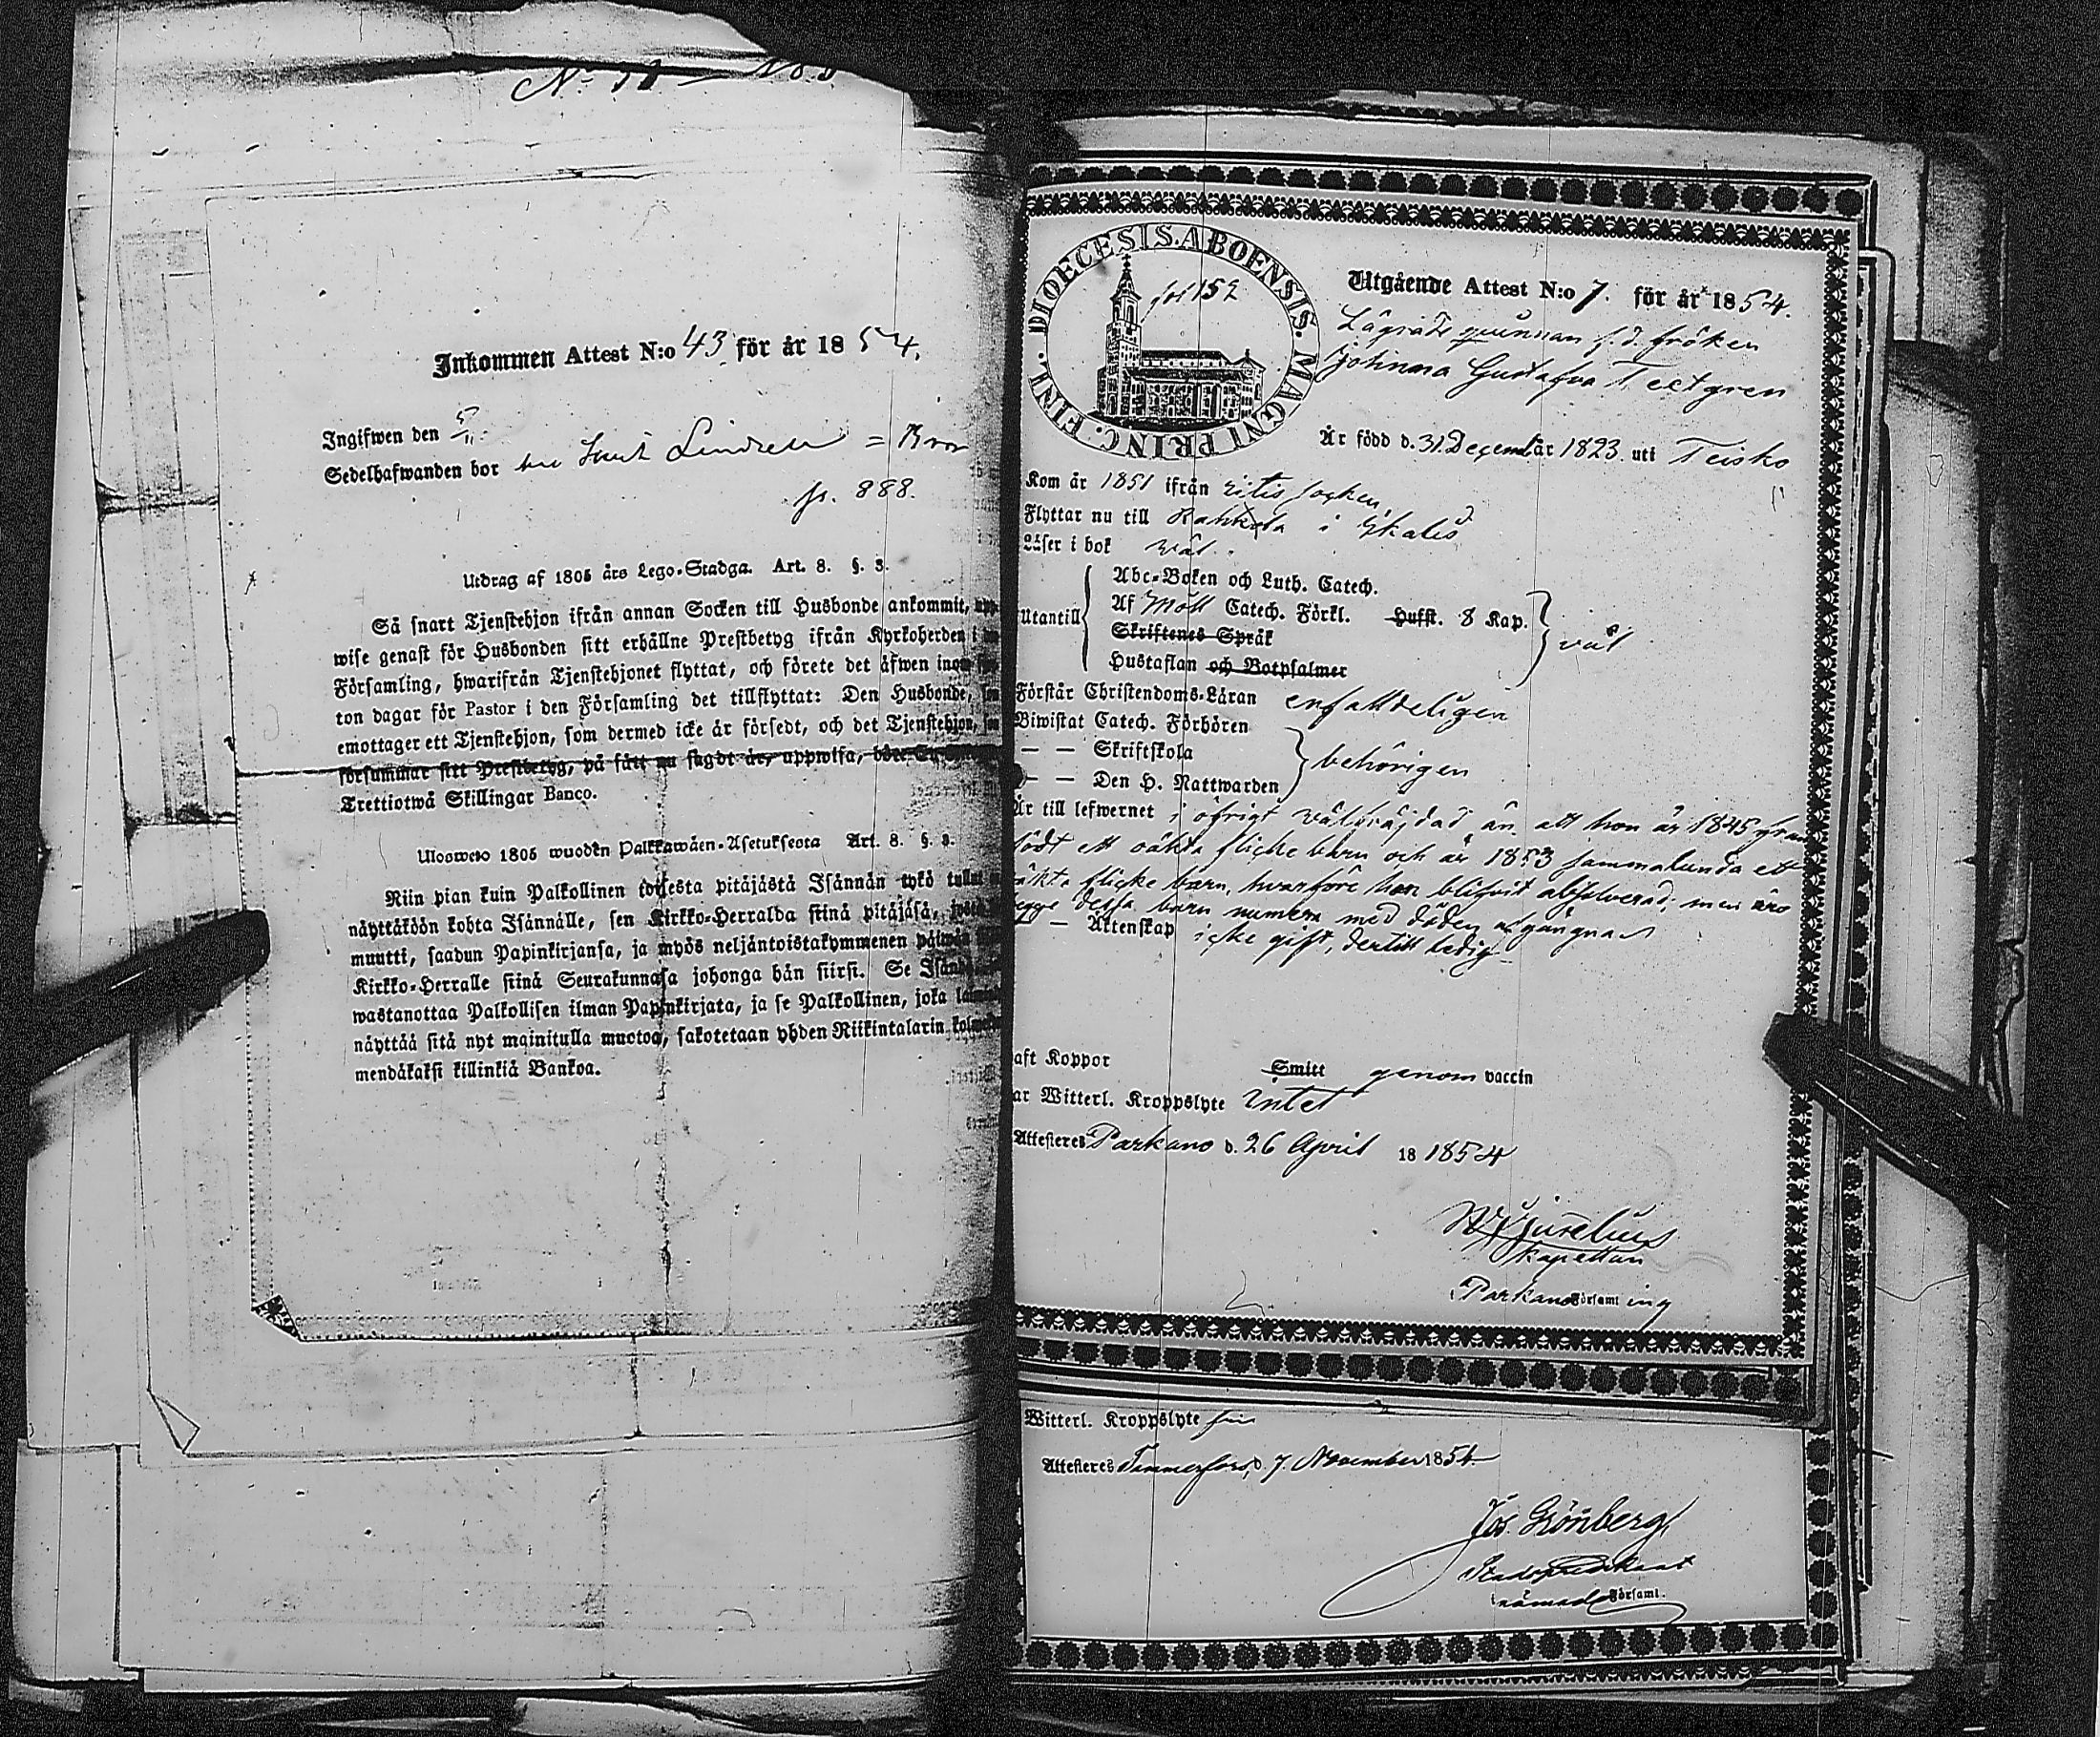 Inkommen Attest N:o 43 för år 1854.
Ingifwen den
Sedelhafwanden bor
888.
Utdrag af 1805 års Lego-Stadga. Art. 8. §. 3.
Så snart Tjenstehjon ifrån annan Socken till Husbonde ankommit,
wise genast för Husbonden sitt erhållne Prestbetyg ifrån Kyrkoherden i
Församling, hwarifrån Tjenstehjonet flyttat, och förete det äfwen inom
ton dagar för Pastor i den Församling det tillflyttat: Den Husbonde,
emottager ett Tjenstehjon, som dermed icke är försedt, och det Tjenstehjon,
försummar sitt Prestbetyg, på sätt nu sagdt är, uppwisa, böte
Trettiotwå Skillingar Banco.
Ulosweto 1805 wuoden Palkkawäen-Asetuksesta Art. 8. §. 3.
Niin pian kuin Palkollinen toisesta pitäjästä Isännän tykö tullut
näyttäköön kohta Isännälle, sen Kirkko-Herralda siinä pitäjäsä,
muutti, saadun Papinkirjansa, ja myös neljäntoistakymmenen
Kirkko-Herralle siinä Seurakunnasa johonga hän siirsi. Se
wastanottaa Palkollisen ilman Papinkirjata, ja se Palkollinen, joka
näyttää sitä nyt mainitulla muotoa, sakotetaan yhden Riikintalarin
mendäkaksi killinkiä Bankoa.
DIOECESIS. ABOENSIS. MAGNI PRINC. FINL.
fol 152
Utgående Attest N:o 7. för år 1854.
Lägrade qvinnan f.d. fröken
Johanna Gustafva Tectgren
Är född d. 31 December år 1823 uti Teisko
Kom år 1851 ifrån Itis socken
Flyttar nu till i Ikalis
Läser i bok väl.
Utantill
Abc-Boken och Luth. Catech.
Af Möll Catech. Förkl. Hufst. 8 Kap.
Skriftenes Språk
Hustaflan och Botpsalmer
väl
Förstår Christendoms-Läran enfalldeligen
Biwistat Catech. Förhören
— — Skriftskola
— — Den H. Nattwarden
behörigen
Är till lefwernet i öfrigt välfräjdad, än att hon år 1845
födt ett oäkta flicke barn och år 1853 sammalunda ett
oäkta flicke barn, hvarföre hon blifvit absolverad; men äro
begge dessa barn numera med döden afgångna
— Äktenskap icke gift, dertill ledig
aft Koppor Smitt genom vaccin
ar Witterl. Kroppslyte intet
Attesteres Parkano d. 26 April 18 1854
Kapellan
i Parkano Församl ing
Witterl. Kroppslyte fri
Attesteres Tammerfors, d. 7. November 1854
Jos. Grönberg
församl.